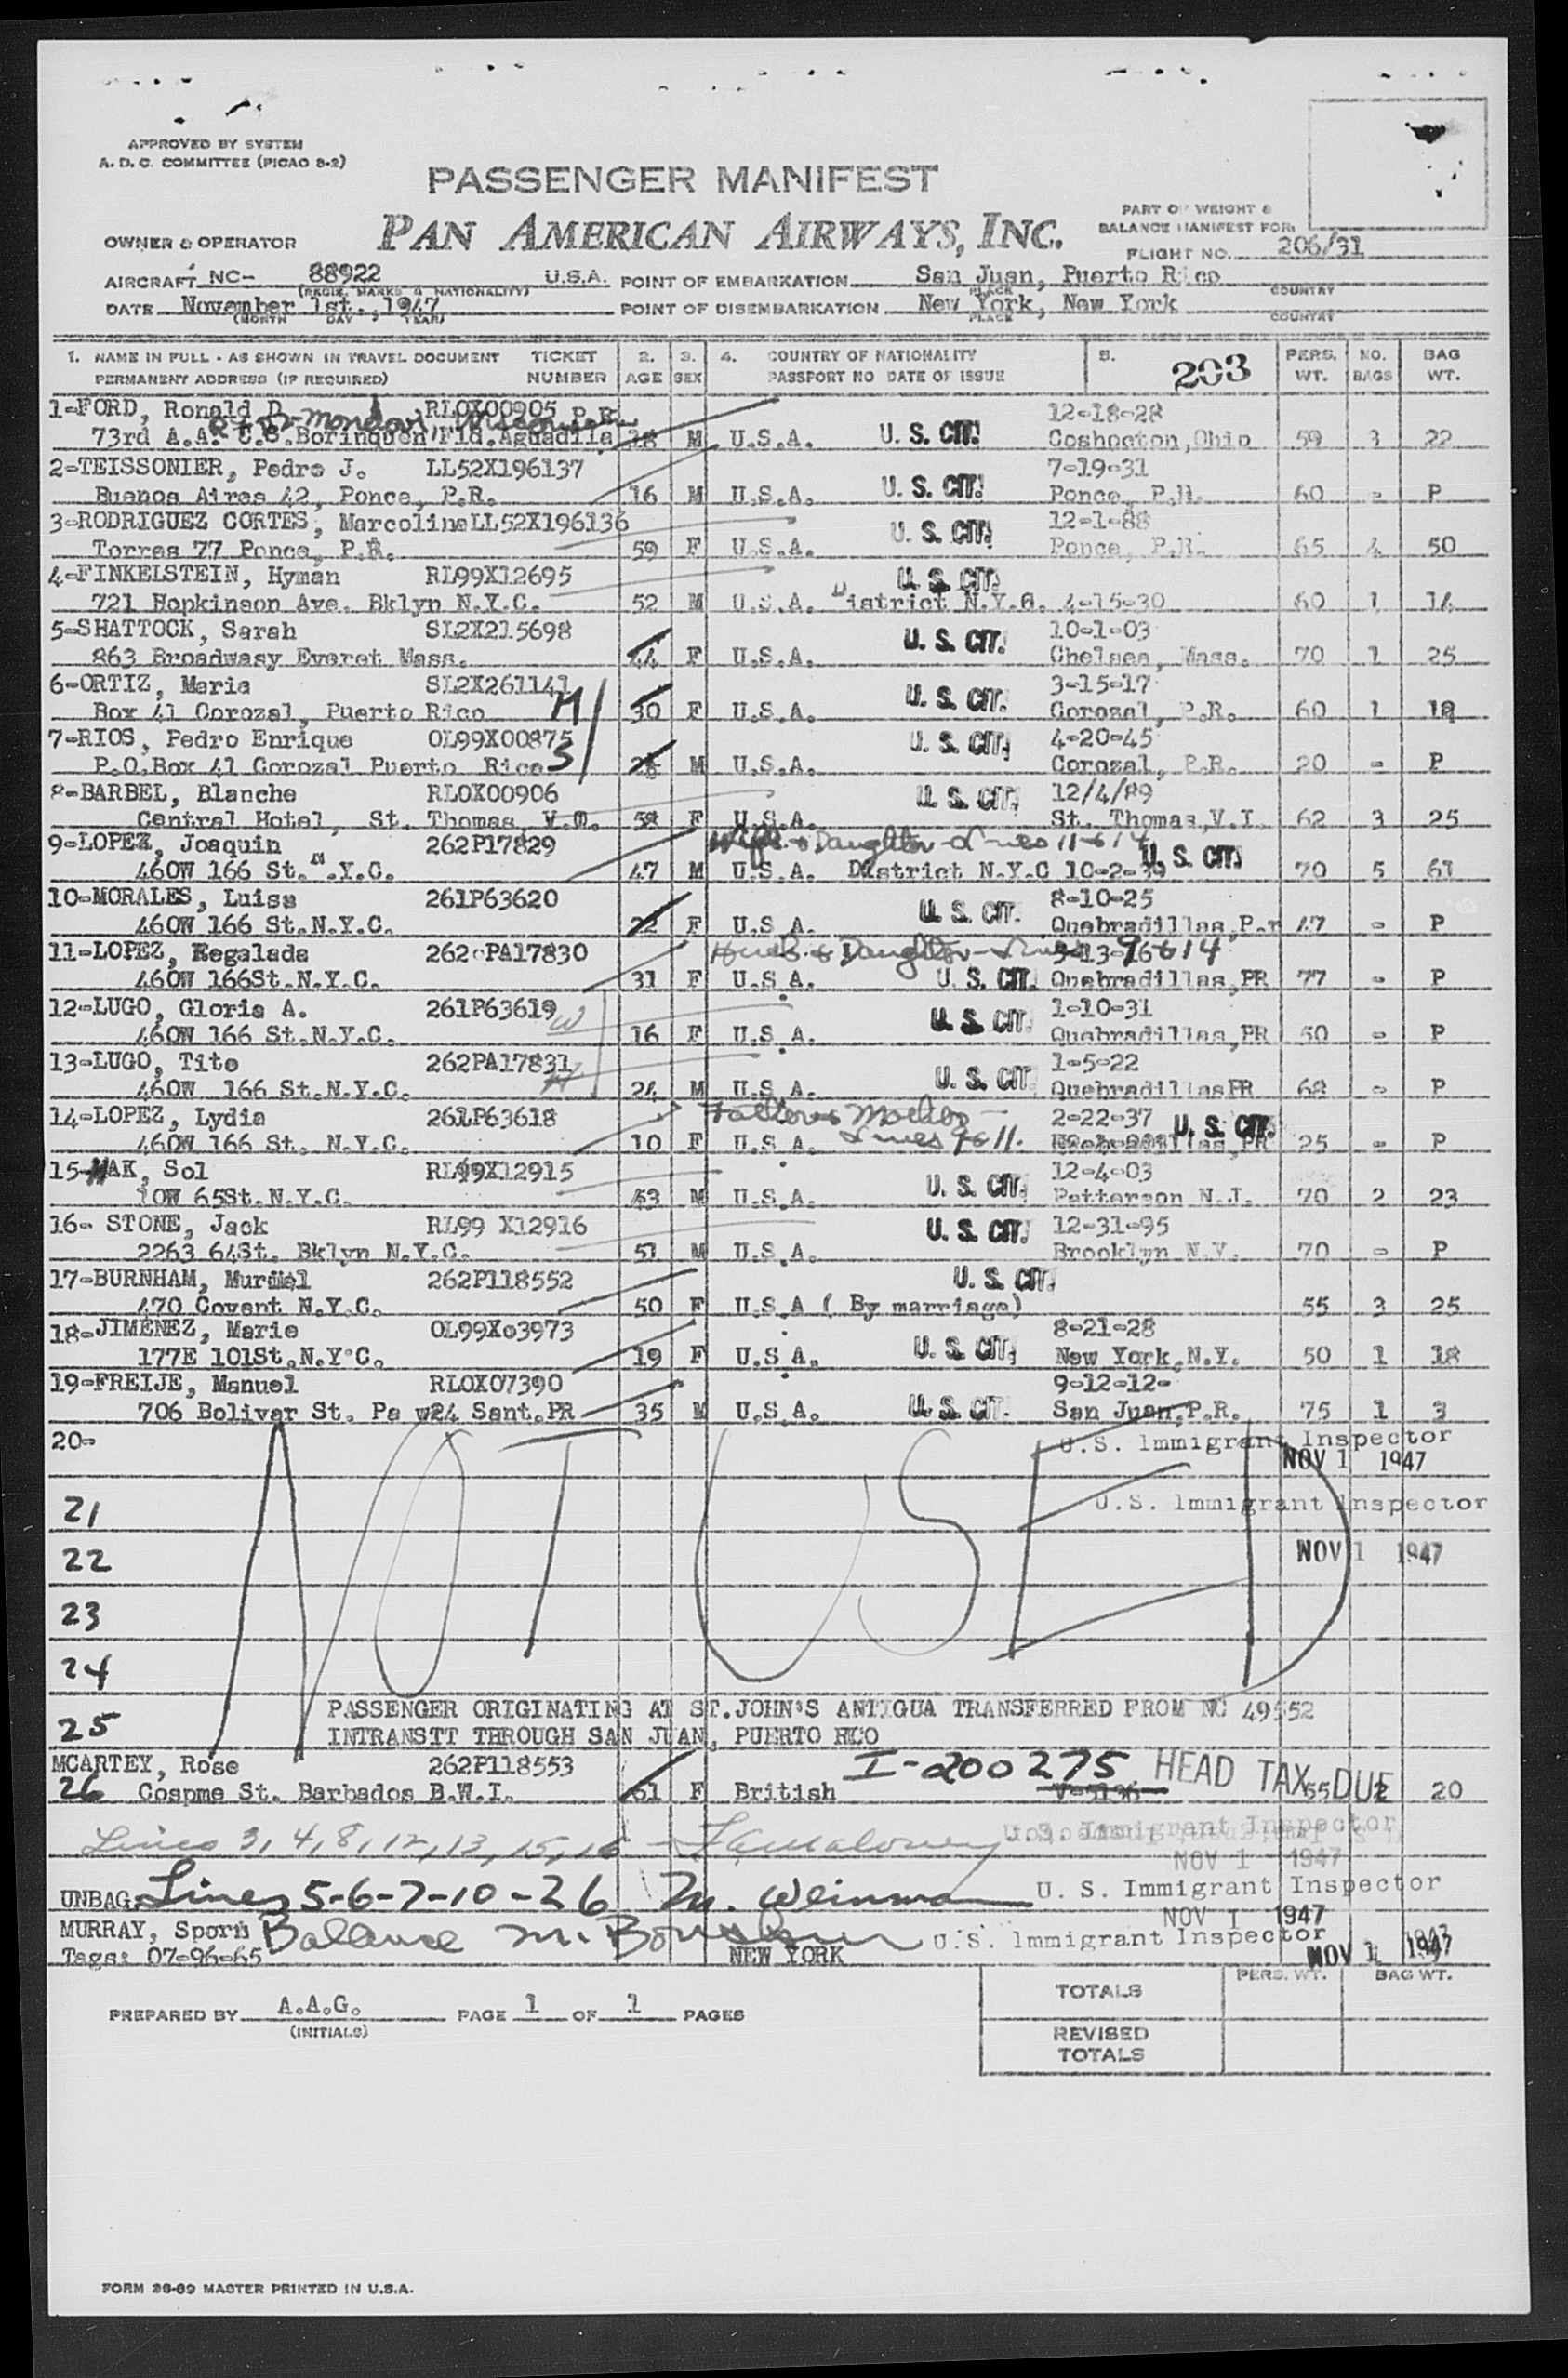 APPROVED BY SYSTEM
A. D. C. COMMITTEE (PICAO 8-2)
PASSENGER MANIFEST
PAN AMERICAN AIRWAYS, INC.
PART OF WEIGHT &
BALANCE MANIFEST FOR:
OWNER & OPERATOR
FLIGHT NO. 206/31
AIRCRAFT NC- 88922 U.S.A. POINT OF EMBARKATION San Juan, Puerto Rico
(REGIS. MARKS & NATIONALITY) PLACE COUNTRY
DATE November 1st., 1947 POINT OF DISEMBARKATION New York, New York
(MONTH DAY YEAR) PLACE COUNTRY
1. NAME IN FULL - AS SHOWN IN TRAVEL DOCUMENT TICKET 2. 3. 4. COUNTRY OF NATIONALITY 5. 203 PERS. NO. BAG
PERMANENT ADDRESS (IF REQUIRED) NUMBER AGE SEX PASSPORT NO DATE OF ISSUE WT. BAGS WT.
1-FORD, Ronald D. RLOX00905 P.R. 12-18-28
Mondovi Wisconsin
73rd A.A. C.S. Borinquen Fld. Aguadilla 18 M U.S.A. U. S. CIT. Coshocton, Ohio 59 3 22
2-TEISSONIER, Pedro J. LL52X196137 7-19-31
Buenos Aires 42, Ponce, P.R. 16 M U.S.A. U. S. CIT. Ponce, P.R. 60 - P
3-RODRIGUEZ CORTES, Marcolina LL52X196136 12-1-88
Torres 77 Ponce, P.R. 59 F U.S.A. U. S. CIT. Ponce, P.R. 65 4 50
4-FINKELSTEIN, Hyman RL99X12695 U. S. CIT.
721 Hopkinson Ave. Bklyn N.Y.C. 52 M U.S.A. District N.Y.C. 4-15-30 60 1 14
5-SHATTOCK, Sarah SL2X215698 10-1-03
863 Broadwasy Everet Mass. 44 F U.S.A. U. S. CIT. Chelsea, Mass. 70 1 25
6-ORTIZ, Maria SL2X261141 3-15-17
Box 41 Corozal, Puerto Rico M 30 F U.S.A. U. S. CIT. Corozal, P.R. 60 1 18
7-RIOS, Pedro Enrique OL99X00875 4-20-45
P.O.Box 41 Corozal Puerto Rico S M U.S.A. U. S. CIT. Corozal, P.R. 20 - P
8-BARBEL, Blanche RLOX00906 12/4/89
Central Hotel, St. Thomas, 58 F U.S.A. U. S. CIT. St. Thomas, V.I. 62 3 25
9-LOPEZ, Joaquin 262P17829 Wife & Daughter - Lines 11 & 14
460W 166 St. N.Y.C. 47 M U.S.A. District N.Y.C 10-2-39 U. S. CIT. 70 5 61
10-MORALES, Luisa 261P63620 8-10-25
460W 166 St.N.Y.C. 22 F U.S.A. U. S. CIT. Quebradillas, P.r 47 - P
11-LOPEZ, Regalada 262 PA17830 Husb. & Daughter - Lines 9 & 14
460W 166St.N.Y.C. 31 F U.S.A. U. S. CIT. Quebradillas, PR 77 - P
12-LUGO, Gloria A. 261P63619 W 1-10-31
460W 166 St.N.Y.C. 16 F U.S.A. U. S. CIT. Quebradillas, PR 50 - P
13-LUGO, Tito 262PA17831 H 1-5-22
460W 166 St.N.Y.C. 24 M U.S.A. U. S. CIT. Quebradillas PR 68 - P
14-LOPEZ, Lydia 261P63618 Father & Mother - 2-22-37 U. S. CIT.
460W 166 St. N.Y.C. 10 F U.S.A. Lines 9 & 11. Quebradillas, PR 25 - P
15- AK, Sol RL99X12915 12-4-03
10W 65St.N.Y.C. 43 M U.S.A. U. S. CIT. Patterson N.J. 70 2 23
16- STONE, Jack RL99 X12916 U. S. CIT. 12-31-95
2263 64St. Bklyn N.Y.C. 51 M U.S.A. Brooklyn N.Y. 70 - P
17-BURNHAM, 262P118552 U. S. CIT.
470 Covent N.Y.C. 50 F U.S.A ( By marriage) 55 3 25
18-JIMENEZ, Marie OL99Xo3973 8-21-28
177E 101St.N.Y.C. 19 F U.S.A. U. S. CIT. New York, N.Y. 50 1 18
19-FREIJE, Manuel RLOX07390 9-12-12-
706 Bolivar St. Pa w24 Sant.PR 35 M U.S.A. U. S. CIT. San Juan, P.R. 75 1 3
20- U.S. Immigrant Inspector
NOV 1 1947
21 U.S. Immigrant Inspector
NOT USED
22 NOV 1 1947
23
24
PASSENGER ORIGINATING AT ST.JOHN'S ANTIGUA TRANSFERRED FROM NC 49552
25 INTRANSIT THROUGH SAN JUAN, PUERTO RICO
MCARTEY, Rose 262P118553 I-200275 HEAD TAX DUE
26 Cospme St. Barbados B.W.I. 61 F British 55 2 20
Lines 3, 4, 8, 12, 13, 15, 16 U.S. Immigrant Inspector
NOV 1 1947
UNBAG. Lines 5-6-7-10-26 M. Weinman U. S. Immigrant Inspector
NOV 1 1947
MURRAY, Balance M. U.S. Immigrant Inspector
Tags: 07-96-65 NEW YORK NOV 1 1947
TOTALS PERS. WT. BAG WT.
PREPARED BY A.A.G. PAGE 1 OF 1 PAGES
(INITIALS)
REVISED
TOTALS
FORM 36-69 MASTER PRINTED IN U.S.A.